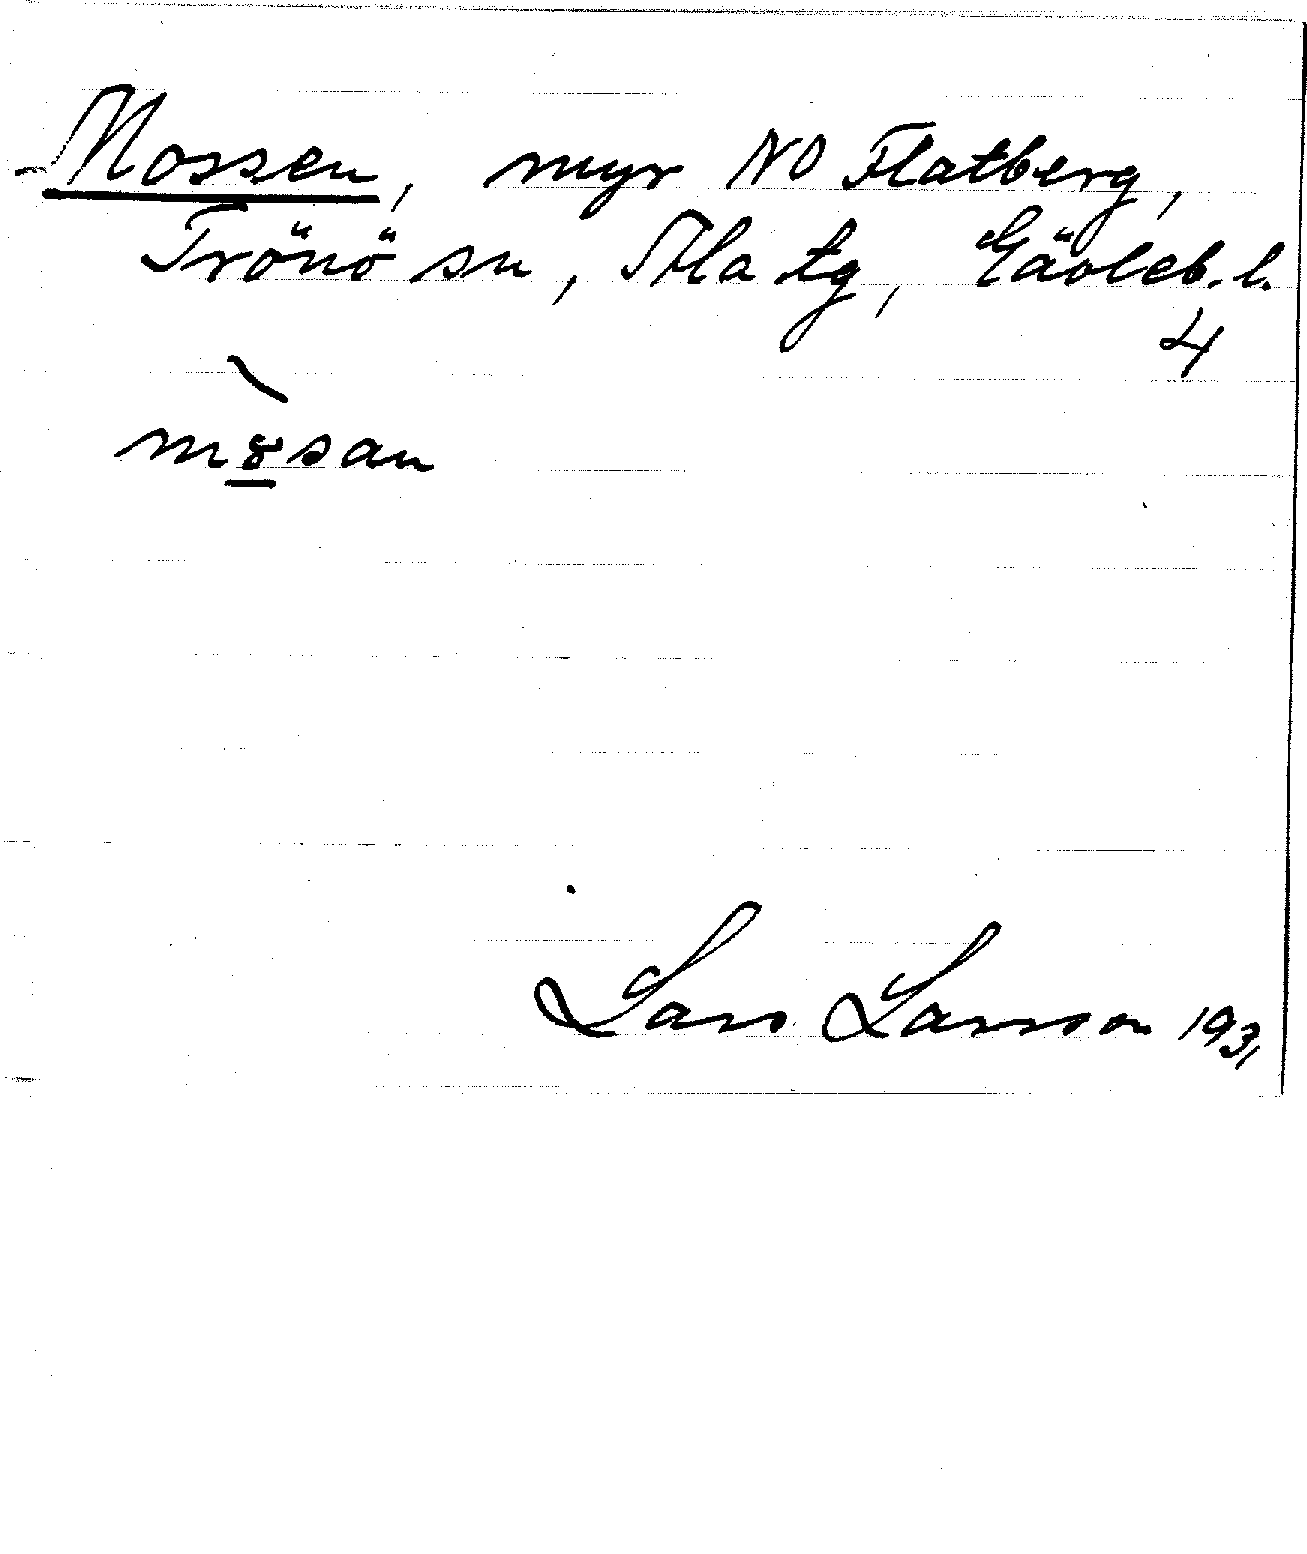 Mossen, myr NO Flatberg,
Trönö sn, Ala tg, Gävleb. l.
4
m8san
Lars Larsson 1931